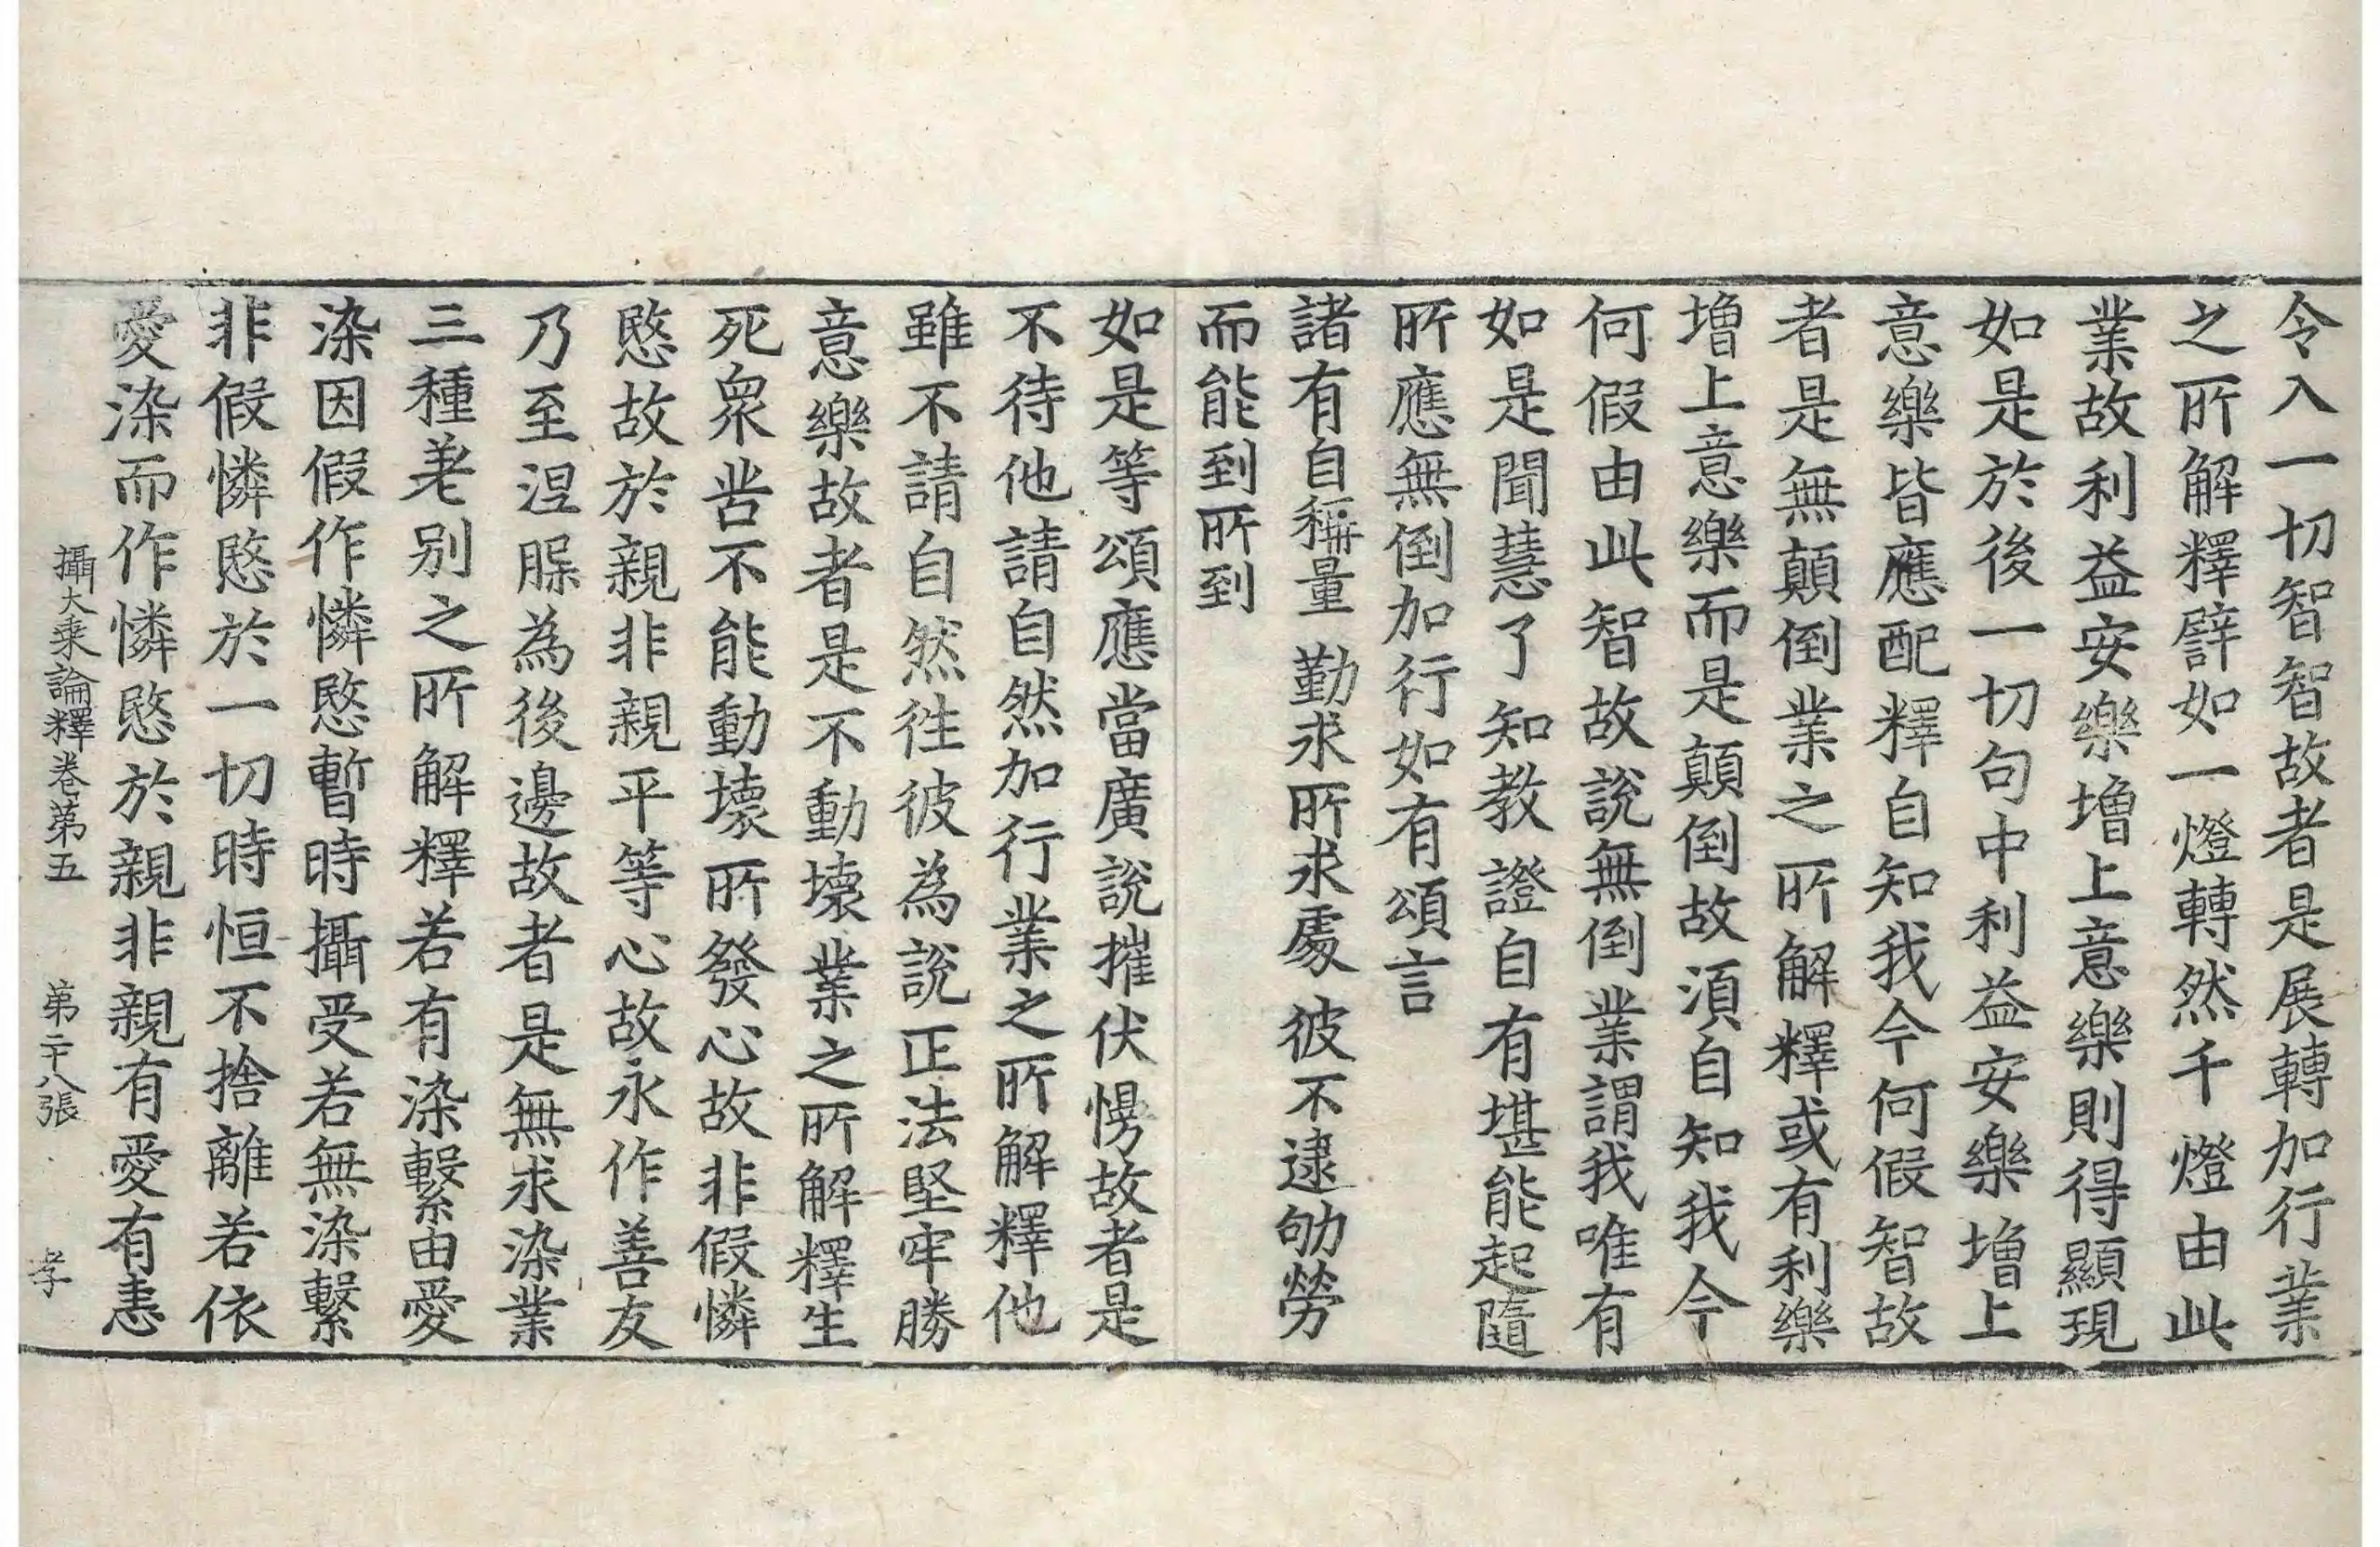 令入一切智智故者是展轉加行業
之所解釋譬如一燈轉然千燈由此
業故利益安樂增上意樂則得顯現
如是於後一切句中利益安樂增上
意樂皆應配釋自知我今何假智故
者是無顛倒業之所解釋或有利樂
增上意樂而是顛倒故須自知我今
何假由此智故說無倒業謂我唯有
如是聞慧了知教證自有堪能起隨
所應無倒加行如有頌言
諸有自稱量　勤求所求處　彼不逮劬勞
而能到所到
如是等頌應當廣說摧伏慢故者是
不待他請自然加行業之所解釋他
雖不請自然往彼為說正法堅牢勝
意樂故者是不動壞業之所解釋生
死衆苦不能動壞所發心故非假憐
愍故於親非親平等心故永作善友
乃至涅脲為後邊故者是無求染業
三種差別之所解釋若有染繫由愛
染因假作憐愍暫時攝受若無染繫
非假憐愍於一切時恒不捨離若依
愛染而作憐愍於親非親有愛有恚
攝大乘論釋卷第五　第二十八張　孝